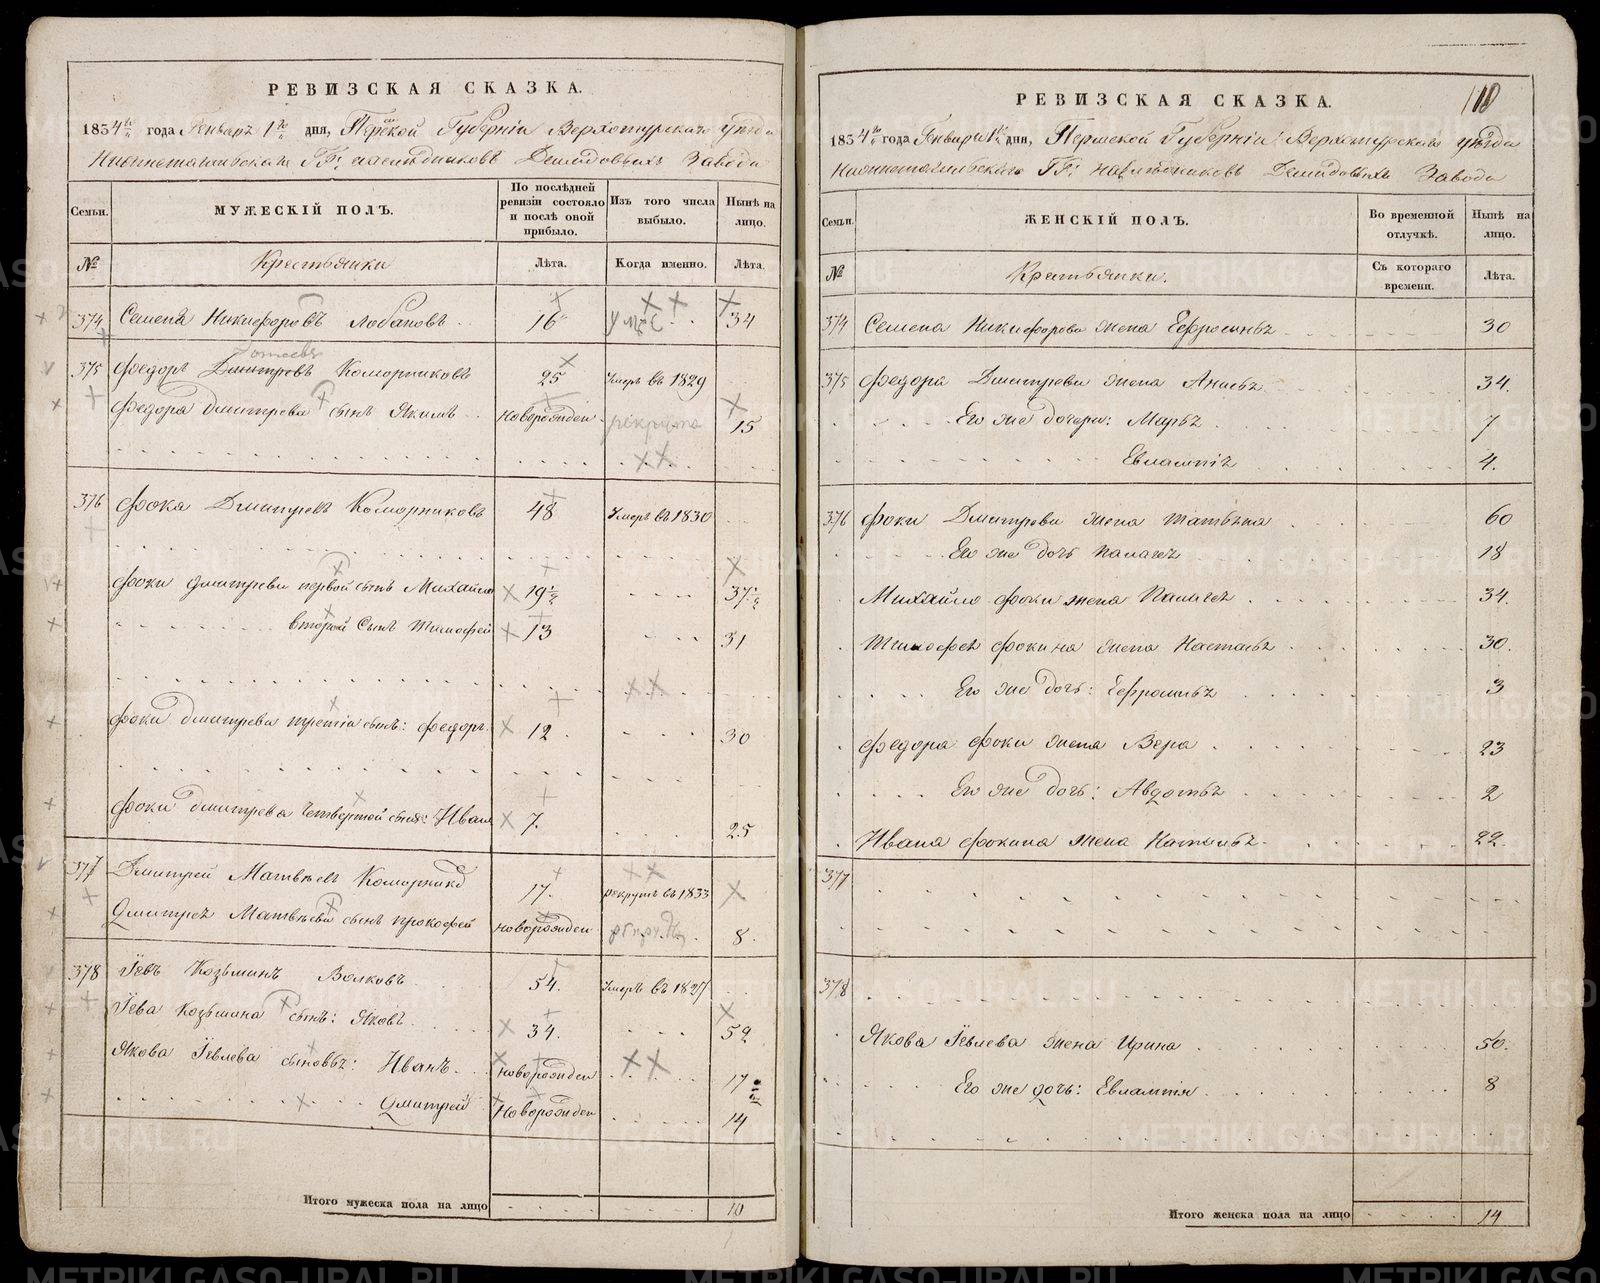 РЕВИЗСКАЯ СКАЗКА.
1834го года Генваря 1го дня, Пермской Губерніи Верхотурскаго уѣзда
Нижнетагильскаго ГГ: наслѣдниковъ Демидовыхъ Завода
Семьи.
МУЖЕСКІЙ ПОЛЪ.
По послѣдней ревизіи состояло и послѣ оной прибыло.
Изъ того числа выбыло.
Нынѣ на лицо.
№
Крестьянки
Лѣта.
Когда именно.
Лѣта.
374 Семенъ Никифоровъ Лобановъ 16 34
375 Федоръ Дмитровъ Коморниковъ 25 Умеръ въ 1829
Федора Дмитрева сынъ Якимъ новорожден рекрута 15
376 Фока Дмитревъ Коморниковъ 48 Умеръ въ 1830
Фоки Дмитрева первой сынъ Михайло 19½ 37½
второй Сынъ Тимофей 13 31
Фоки Дмитрева третій сынъ: Федоръ 12 30
Фоки Дмитрева четвертой сынъ: Иванъ 7. 25
377 Дмитрей Матвѣевъ Коморников 17. рекрутъ въ 1833
Дмитрея Матвѣева сынъ Прокофей новорожден 8.
378 Іевъ Козьминъ Волковъ 54. Умеръ въ 1827
Іева Козьмина сынъ: Яковъ 34. 52
Якова Іевлева сыновья: Иванъ новорожден 17½
Дмитрей новорожден 14
Итого мужеска пола на лицо 10
110
РЕВИЗСКАЯ СКАЗКА.
1834го года Генваря 1го дня, Пермской Губерніи Верхотурскаго уѣзда
Нижнетагильскаго ГГ: Наслѣдниковъ Демидовыхъ Завода
Семьи.
ЖЕНСКІЙ ПОЛЪ.
Во временной отлучкѣ.
Нынѣ на лицо.
№
Крестьянки.
Съ котораго времени.
Лѣта.
374 Семена Никифорова жена Ефросинья 30
375 Федора Дмитрева жена Анисья 34.
Его же дочери: Марья 7
Евлампія 4.
376 Фоки Дмитрева жена Татьяна 60
Его же дочь Палагея 18
Михайло Фоки жена Палагея 34.
Тимофея Фокина жена Настасья 30.
Его же дочь: Ефросинья 3
Федора Фоки жена Вера 23
Его же дочь: Авдотья 2
Ивана Фокина жена Наталья 22.
377
378
Якова Іевлева жена Ирина 50.
Его же дочь: Евлампія 8
Итого женска пола на лицо 14
METRIKI.GASO-URAL.RU